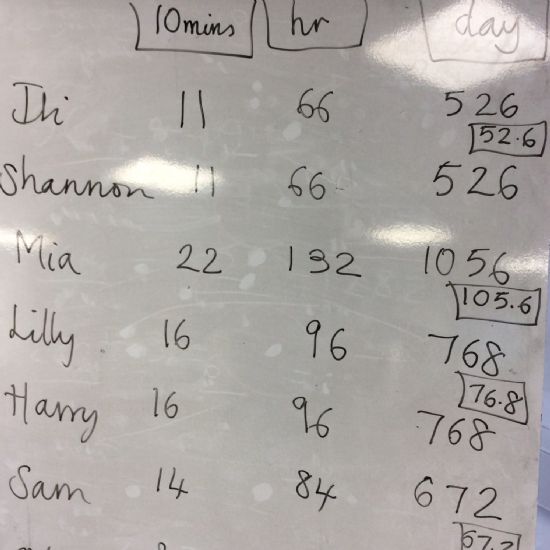 10mins hr day
Ili 11 66 526
52.6
Shannon 11 66 526
Mia 22 132 1056
105.6
Lilly 16 96 768
76.8
Harry 16 96 768
Sam 14 84 672
67.2